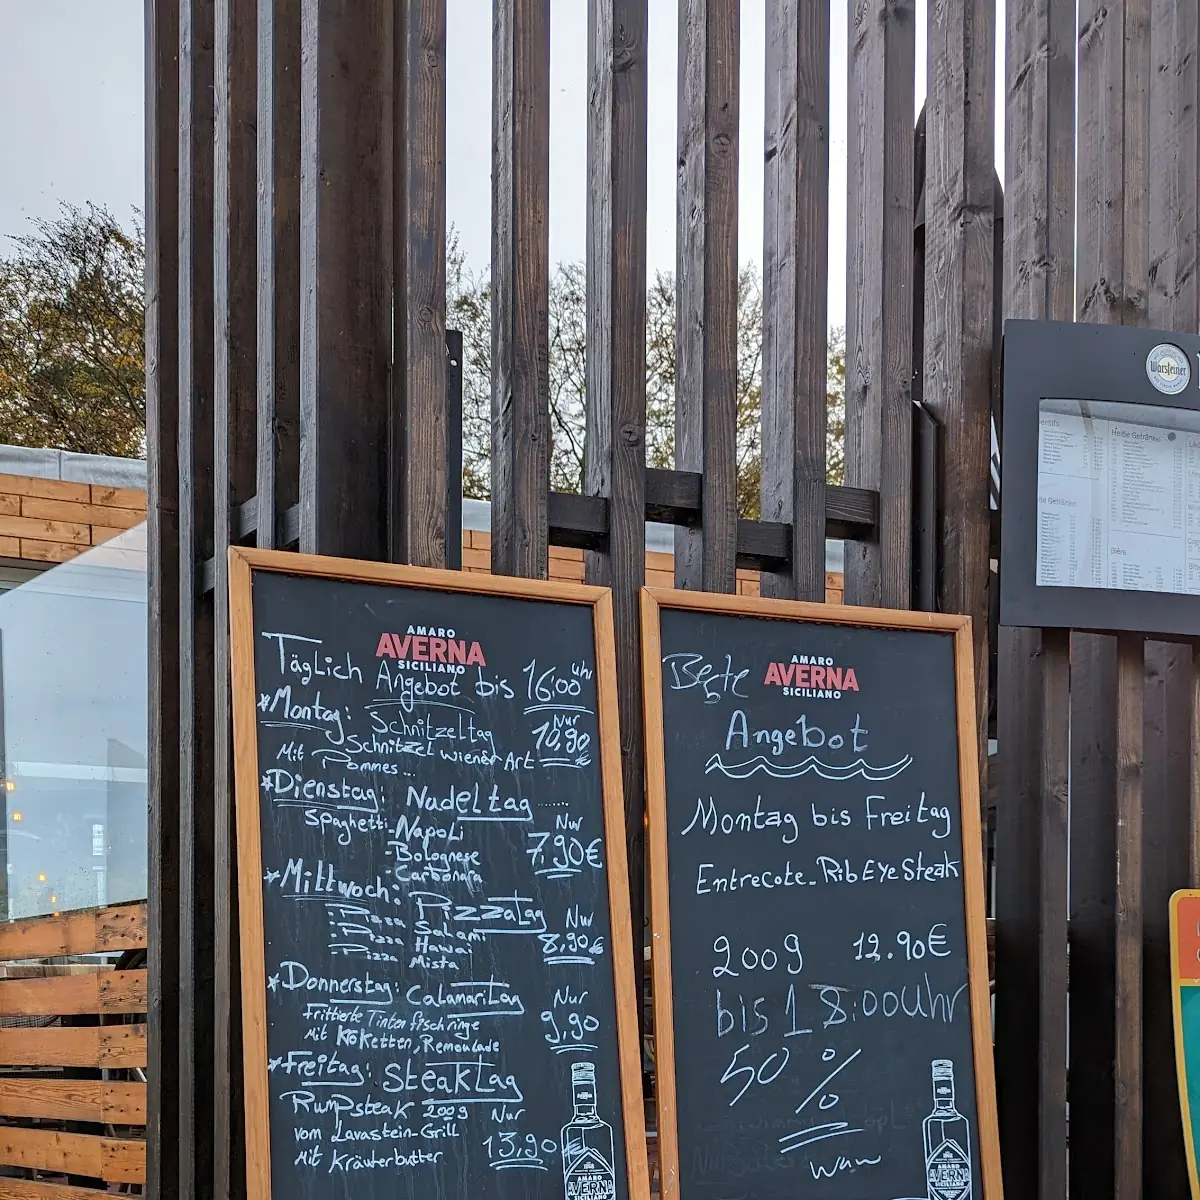 AMARO
AVERNA
SICILIANO
Täglich Angebot bis 16:00 uhr
*Montag: Schnitzeltag Nur
Mit Schnitzel wiener Art 10,90 €
Pommes...
*Dienstag: Nudeltag........
Spaghetti-Napoli Nur
-Bolognese 7,90€
-Carbonara
*Mittwoch: Pizzatag Nur
:Pizza Salami 8,90€
:Pizza Hawai
:Pizza Mista
*Donnerstag: Calamaritag Nur
Frittierte Tintenfischringe 9,90
Mit Koketten, Remoulade
*Freitag: Steaktag
Rumpsteak 200g Nur
vom Lavastein-Grill 13,90 €
Mit Kräuterbutter
AMARO
AVERNA
SICILIANO
Beste
AMARO
AVERNA
SICILIANO
Angebot
Montag bis Freitag
Entrecote-RibEYeSteak
200g 12.90€
bis 18:00Uhr
50 %
wow
AMARO
AVERNA
SICILIANO
Warsteiner
Heiße Getränke
Bière